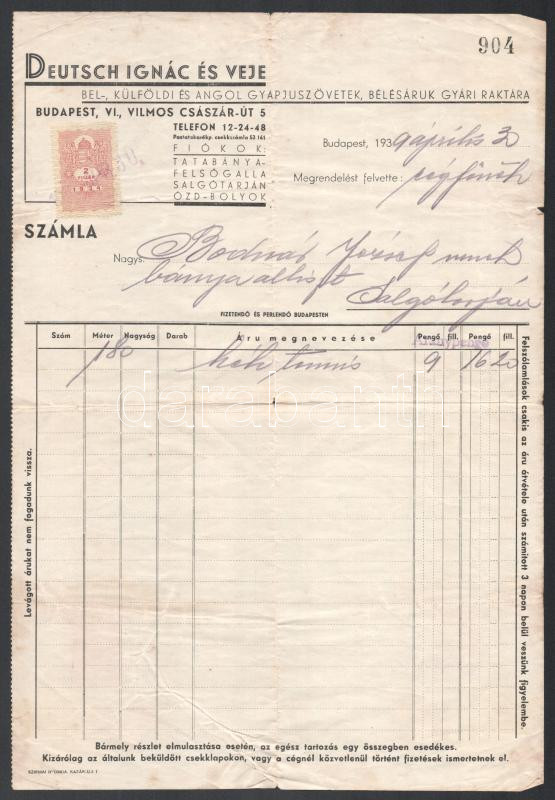 904
DEUTSCH IGNÁC ÉS VEJE
BEL-, KÜLFÖLDI ÉS ANGOL GYAPJUSZÖVETEK, BÉLÉSÁRUK GYÁRI RAKTÁRA
BUDAPEST, VI., VILMOS CSÁSZÁR-ÚT 5
TELEFON 12-24-48
Postatakarékp. csekkszámla 53 161
FIÓKOK:
TATABÁNYA-
FELSŐGALLA
SALGÓTARJÁN
ÓZD-BOLYOK
2
Budapest, 1939 április 3
Megrendelést felvette: cégfőnök
SZÁMLA
Nagys. Bodnár József
Salgótarján
FIZETENDŐ ÉS PERLENDŐ BUDAPESTEN
Szám Méter Nagyság Darab Áru megnevezése Pengő fill. Pengő fill.
180 9 16 20
Levágott árukat nem fogadunk vissza.
Felszólamlások csakis az áru átvétele után számított 3 napon belül veszünk figyelembe.
darabanth
Bármely részlet elmulasztása esetén, az egész tartozás egy összegben esedékes.
Kizárólag az általunk beküldött csekklapokon, vagy a cégnél közvetlenül történt fizetések ismertetnek el.